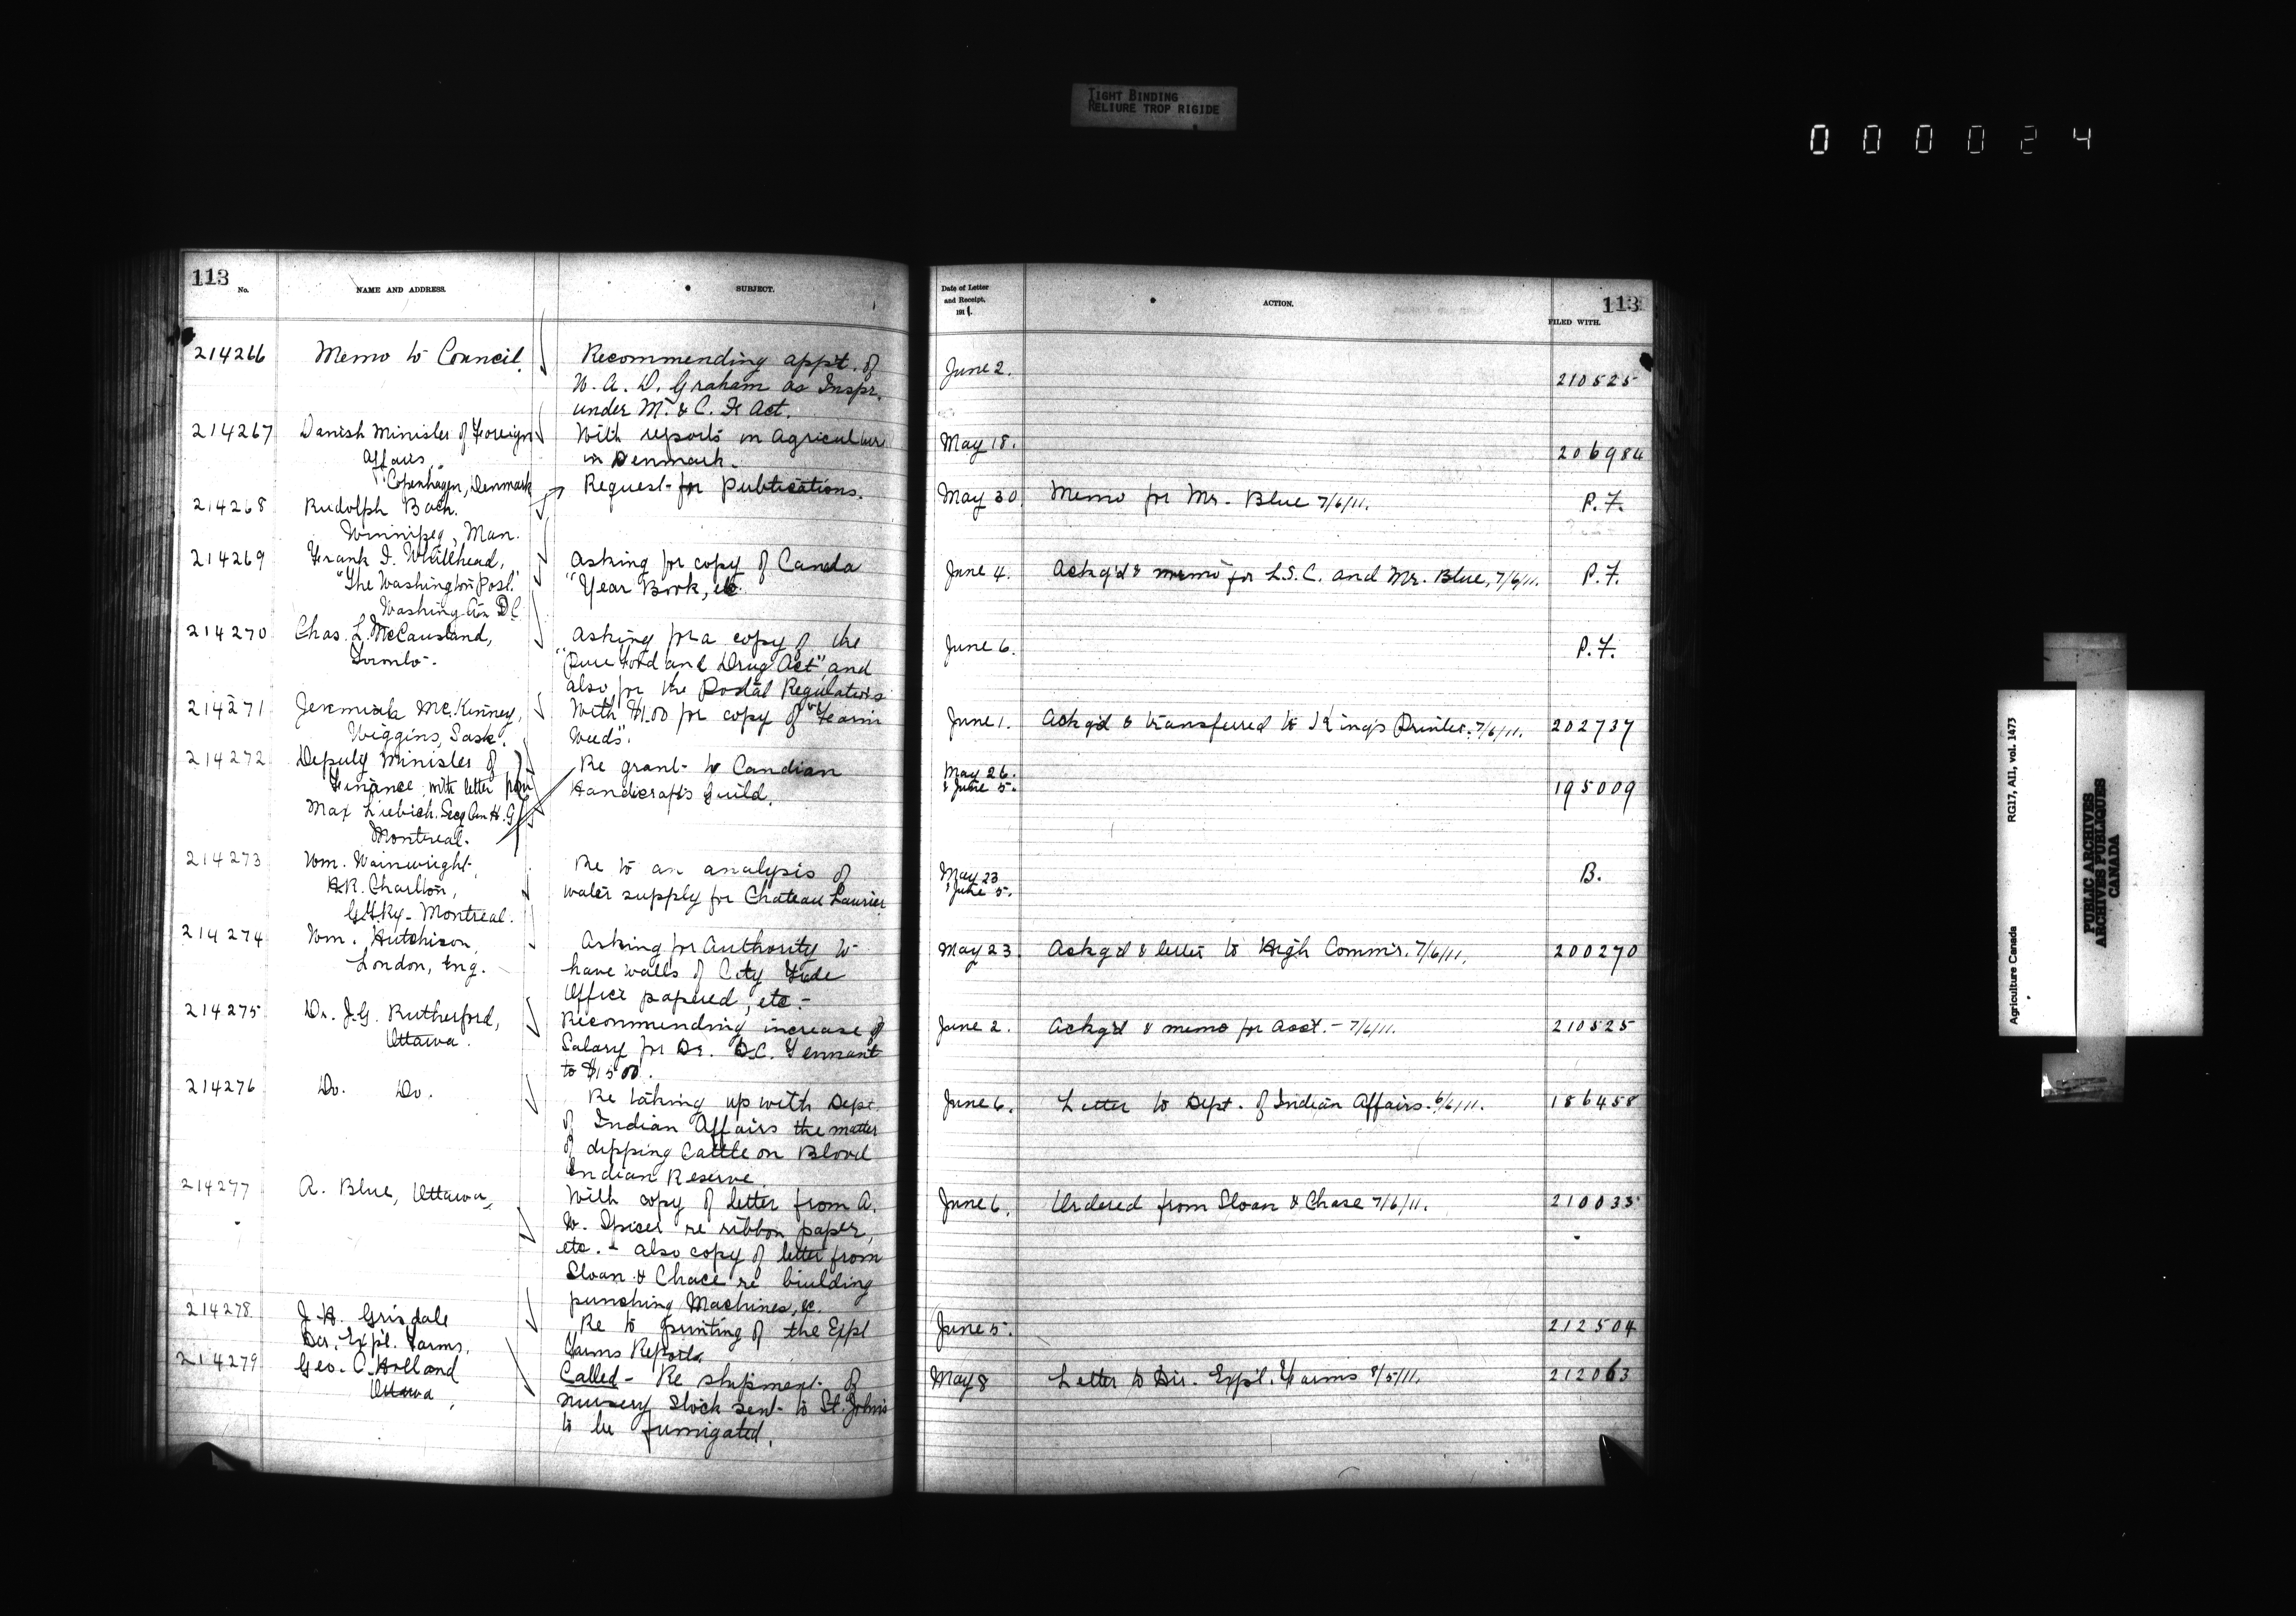 TIGHT BINDING
RELIURE TROP RIGIDE
000024
113
No.
NAME AND ADDRESS.
SUBJECT.
Date of Letter
and Receipt,
1911.
ACTION.
113
FILED WITH.
214266 Memo to Council. Recommending appt. of June 2. 210525
W. A. D. Graham as Inspr.
under M. & C. F. Act.
214267 Danish Minister of Foreign With reports on Agriculture May 18. 206984
Affairs, in Denmark.
Copenhagen, Denmark
214268 Rudolph Bach. Request for Publications. May 30. Memo for Mr. Blue 7/6/11. P.F.
Winnipeg, Man.
214269 Frank I. Whitehead, Asking for copy of Canda June 4. Ackg'd & memo for L.S.C. and Mr. Blue, 7/6/11. P.F.
"The Washington Post." "Year Book, etc.
Washington D.C.
214270 Chas. L. McCausland, Asking for a copy of the June 6. P.F.
Toronto. "Pure Food and Drug Act" and
also for the Postal Regulations
214271 Jeremiah McKinney, With $1.00 for copy of "Farm June 1. Ackg'd & transferred to King's Printer. 7/6/11. 202737
Wiggins, Sask. Weeds".
214272 Deputy Minister of Re grant to Candian May 26. 195009
Finance, with letter from Handicrafts Guild. & June 5.
Max Liebich. Secy Can H.G.
Montreal.
214273 Wm. Wainwright, Re to an analysis of May 23 B.
H.R. Charlton, water supply for Chateau Laurier & June 5.
G.T.Ry. Montreal.
214274 Wm. Hutchison, Asking for Authority to May 23. Ackg'd & letter to High Comm'r. 7/6/11. 200270
London, Eng. have walls of City Trade
Office papered, etc.
214275 Dr. J.G. Rutherford, Recommending increase of June 2. Ackg'd & memo for Acct. 7/6/11. 210525
Ottawa. Salary for Dr. D.C. Tennant
to $1500.
214276 Do. Do. Re taking up with Dept. June 6. Letter to Dept. of Indian Affairs. 6/6/11. 186458
of Indian Affairs the matter
of dipping Cattle on Blood
Indian Reserve.
214277 A. Blue, Ottawa, With copy of letter from A. June 6. Ordered from Sloan & Chase 7/6/11. 210033
W. Spicer re ribbon paper,
etc. & also copy of letter from
Sloan & Chace re biulding
punching Machines, &c.
214278 J. H. Grisdale Re to printing of the Expl June 5. 212504
Dir. Exp'l. Farms. Farms Reports.
214279 Geo. C. Holland Called - Re shipment of May 8 Letter to Dir. Exp'l. Farms 8/5/11. 212063
Ottawa, nursery Stock sent to St. John's
to be fumigated.
Agriculture Canada RG17, AII, vol. 1473
PUBLIC ARCHIVES
ARCHIVES PUBLIQUES
CANADA